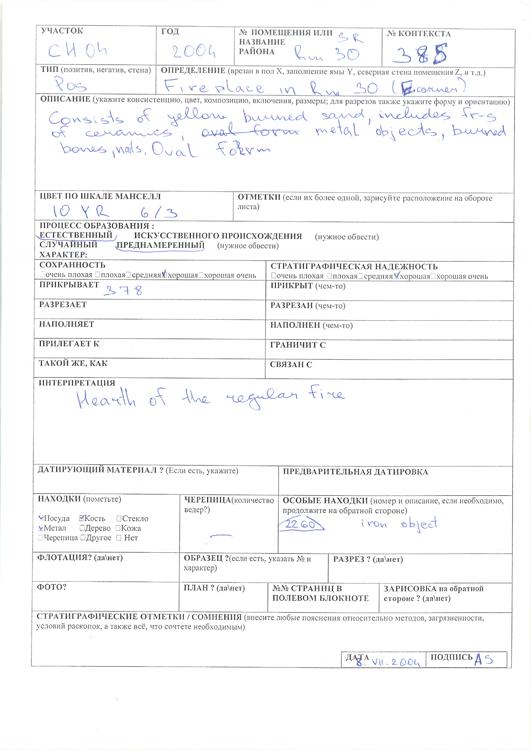 УЧАСТОК
CH 04
ГОД
2004
№ ПОМЕЩЕНИЯ ИЛИ SR
НАЗВАНИЕ
РАЙОНА Rm 30
№ КОНТЕКСТА
385
ТИП (позитив, негатив, стена)
Pos
ОПРЕДЕЛЕНИЕ (врезан в пол X, заполнение ямы Y, северная стена помещения Z, и т.д.)
Fireplace in Rm 30 (E corner)
ОПИСАНИЕ (укажите консистенцию, цвет, композицию, включения, размеры; для разрезов также укажите форму и ориентацию)
Consists of yellow burned sand, includes fr-s
of ceramics, oval form metal objects, burned
bones, nails. Oval form
ЦВЕТ ПО ШКАЛЕ МАНСЕЛЛ
10 YR 6/3
ОТМЕТКИ (если их более одной, зарисуйте расположение на обороте
листа)
ПРОЦЕСС ОБРАЗОВАНИЯ :
ЕСТЕСТВЕННЫЙ ИСКУССТВЕННОГО ПРОИСХОЖДЕНИЯ (нужное обвести)
СЛУЧАЙНЫЙ ПРЕДНАМЕРЕННЫЙ (нужное обвести)
ХАРАКТЕР:
СОХРАННОСТЬ
□очень плохая □плохая□средняя☑хорошая□хорошая очень
СТРАТИГРАФИЧЕСКАЯ НАДЕЖНОСТЬ
□очень плохая □плохая□средняя☑хорошая□хорошая очень
ПРИКРЫВАЕТ
378
ПРИКРЫТ (чем-то)
РАЗРЕЗАЕТ
РАЗРЕЗАН (чем-то)
НАПОЛНЯЕТ
НАПОЛНЕН (чем-то)
ПРИЛЕГАЕТ К
ГРАНИЧИТ С
ТАКОЙ ЖЕ, КАК
СВЯЗАН С
ИНТЕРПРЕТАЦИЯ
Hearth of the regular fire
ДАТИРУЮЩИЙ МАТЕРИАЛ ? (Если есть, укажите)
ПРЕДВАРИТЕЛЬНАЯ ДАТИРОВКА
НАХОДКИ (пометьте)
☑Посуда ☑Кость □Стекло
☑Метал □Дерево □Кожа
□Черепица □Другое □ Нет
ЧЕРЕПИЦА(количество
ведер?)
—
ОСОБЫЕ НАХОДКИ (номер и описание, если необходимо,
продолжите на обратной стороне)
2260 iron object
ФЛОТАЦИЯ? (да\нет)
ОБРАЗЕЦ ?(если есть, указать № и
характер)
РАЗРЕЗ ? (да\нет)
ФОТО?
ПЛАН ? (да\нет)
№№ СТРАНИЦ В
ПОЛЕВОМ БЛОКНОТЕ
ЗАРИСОВКА на обратной
стороне ? (да\нет)
СТРАТИГРАФИЧЕСКИЕ ОТМЕТКИ / СОМНЕНИЯ (внесите любые пояснения относительно методов, загрязненности,
условий раскопок, а также всё, что сочтете необходимым)
ДАТА
8.VII.2004
ПОДПИСЬ AS